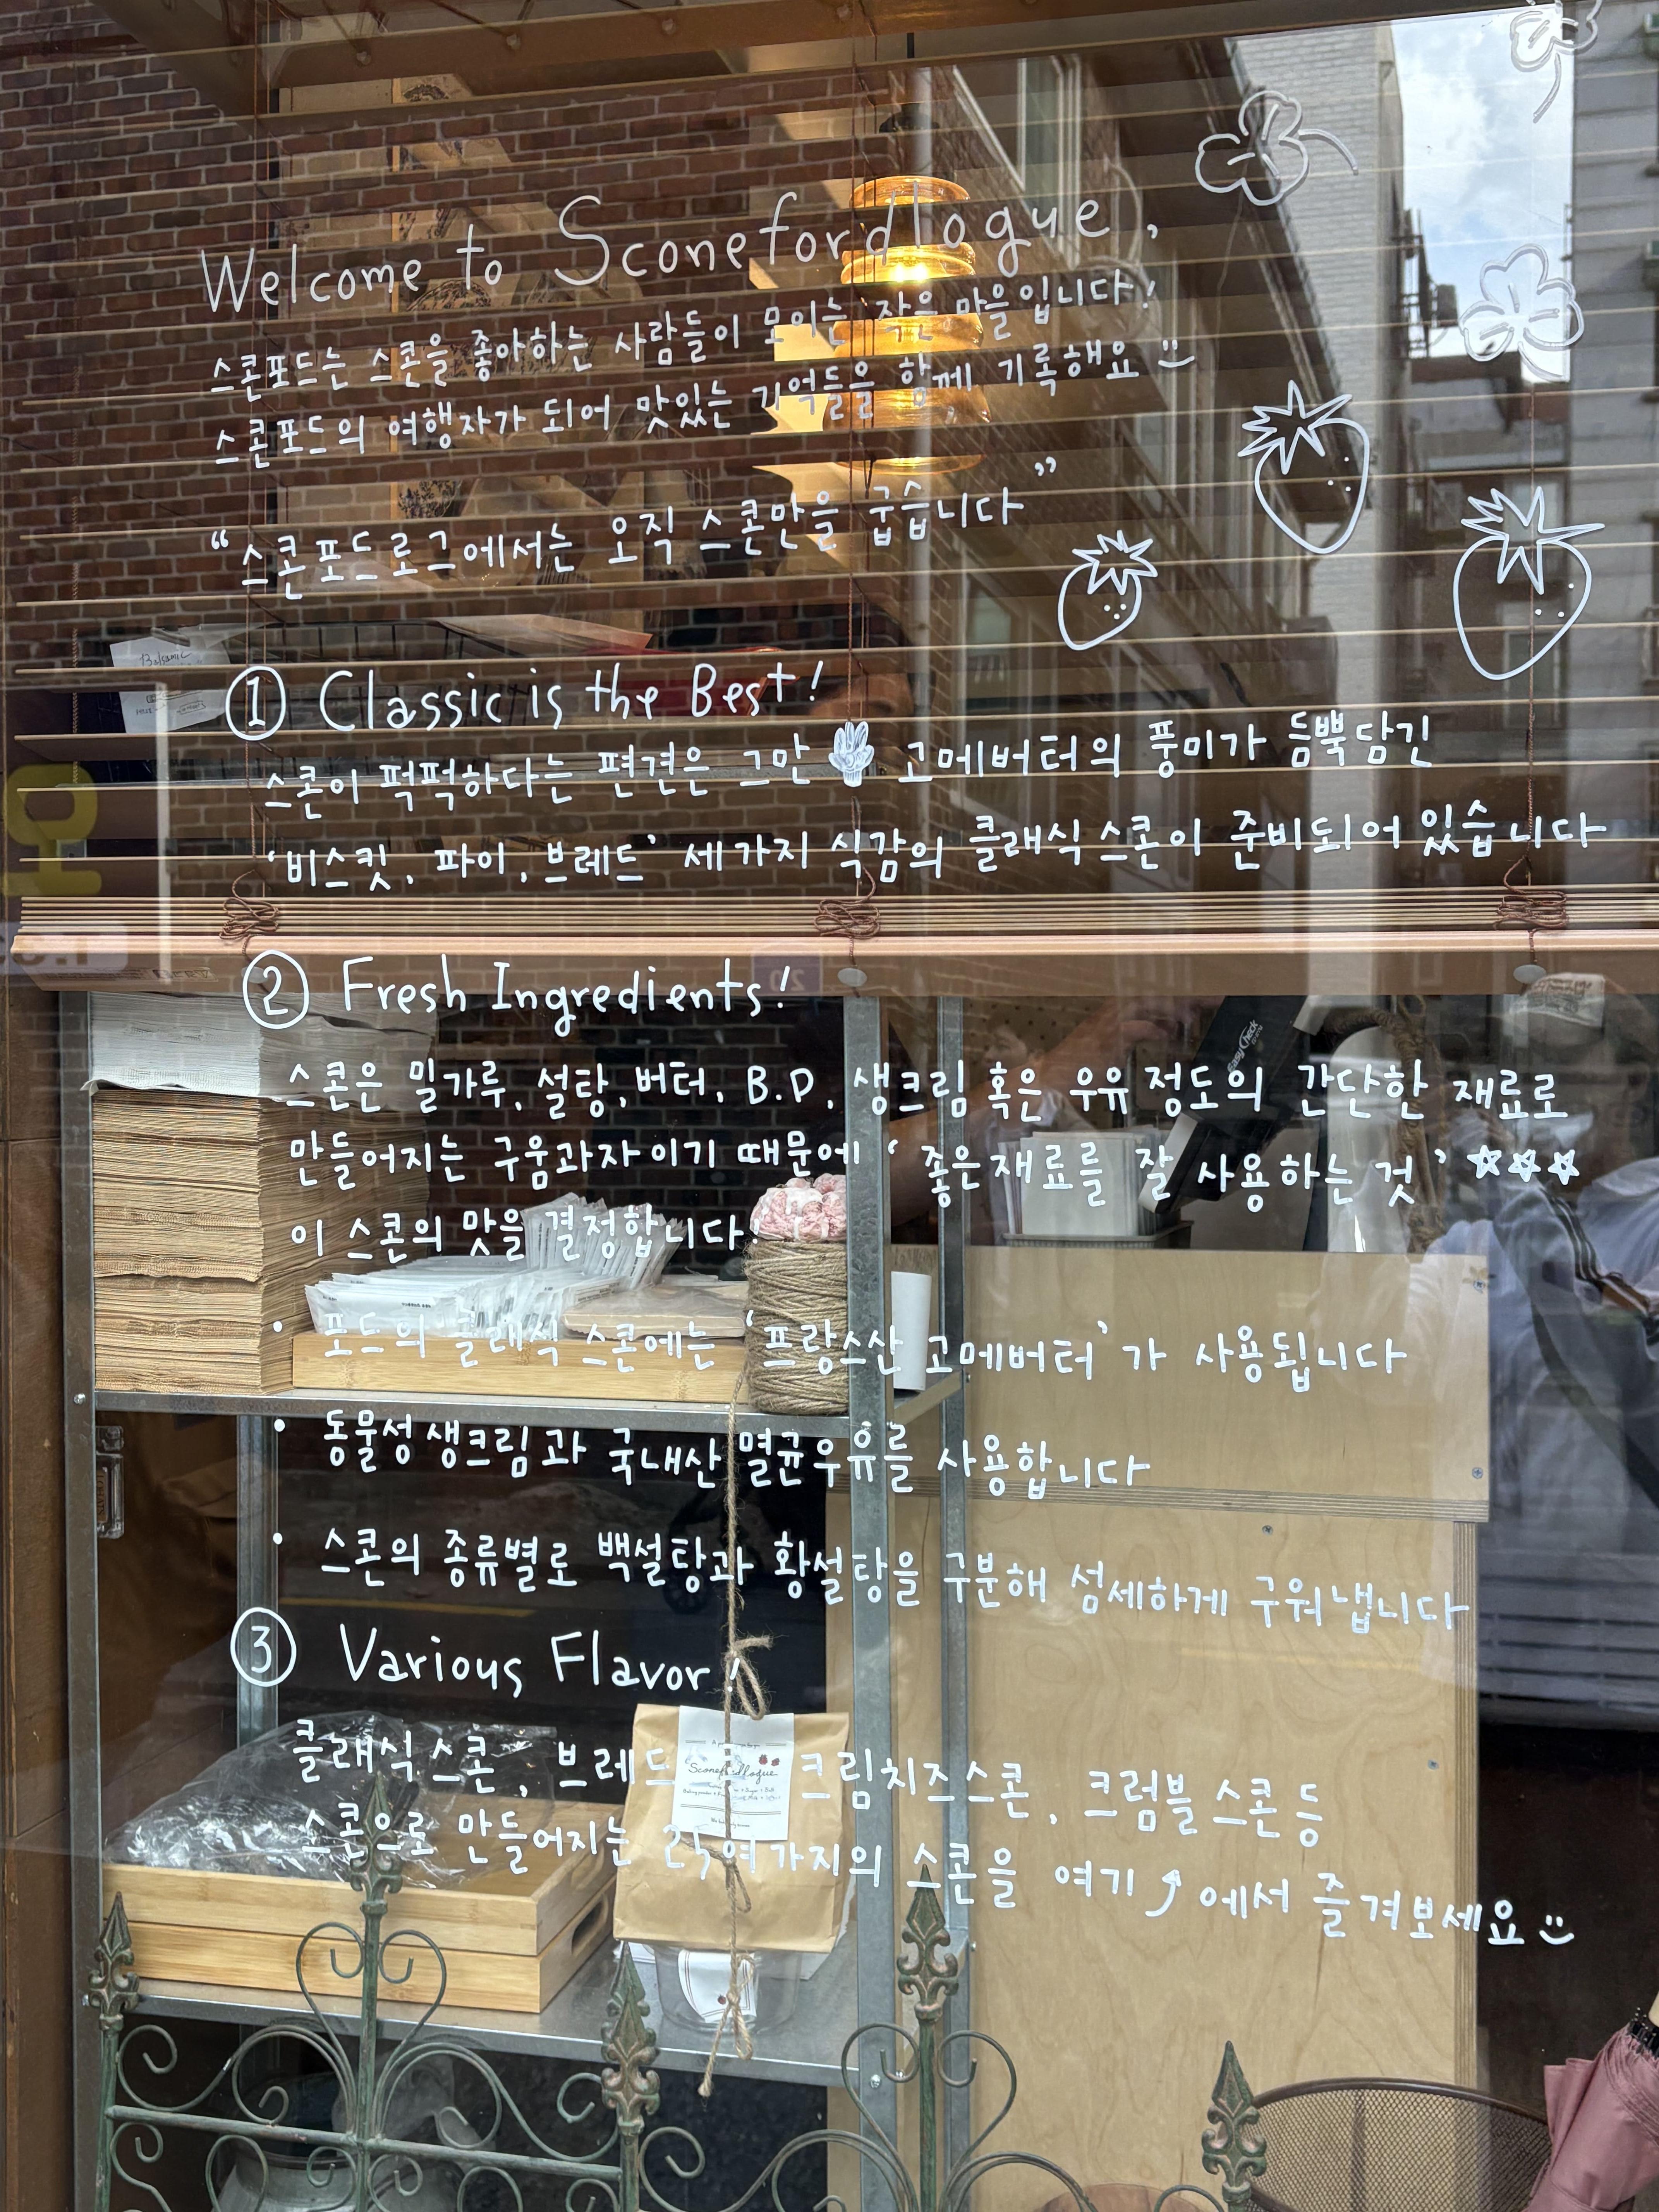 Welcome to Sconefordlogue,
스콘포드는 스콘을 좋아하는 사람들이 모이는 작은 마을입니다!
스콘포드의 여행자가 되어 맛있는 기억들을 함께 기록해요
“스콘포드로그에서는 오직 스콘만을 굽습니다”
① Classic is the Best!
스콘이 퍽퍽하다는 편견은 그만 고메버터의 풍미가 듬뿍담긴
‘비스킷, 파이, 브레드’ 세가지 식감의 클래식 스콘이 준비되어 있습니다
② Fresh Ingredients!
스콘은 밀가루, 설탕, 버터, B.P, 생크림 혹은 우유 정도의 간단한 재료로
만들어지는 구움과자이기 때문에 ‘좋은재료를 잘 사용하는 것’ ☆☆☆
이 스콘의 맛을 결정합니다!
• 포드의 클래식 스콘에는 ‘프랑스산 고메버터’가 사용됩니다
• 동물성생크림과 국내산 멸균우유를 사용합니다
• 스콘의 종류별로 백설탕과 황설탕을 구분해 섬세하게 구워냅니다
③ Various Flavor!
클래식스콘, 브레드 크림치즈스콘, 크럼블 스콘 등
스콘으로 만들어지는 25여가지의 스콘을 여기 에서 즐겨보세요
Sconefordlogue
Balsamic
EasyCheck